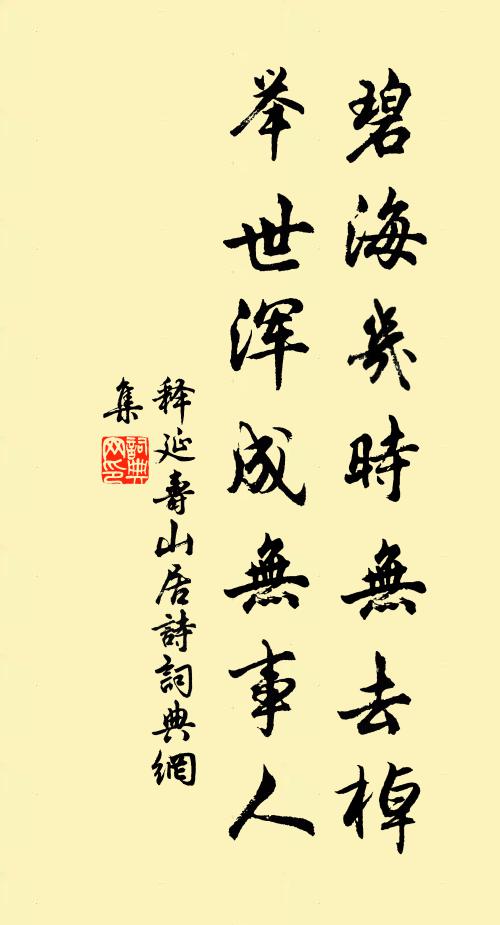 碧海幾時無去棹
举世浑成無事人
释延壽山居詩詞典網
集
詞典網印